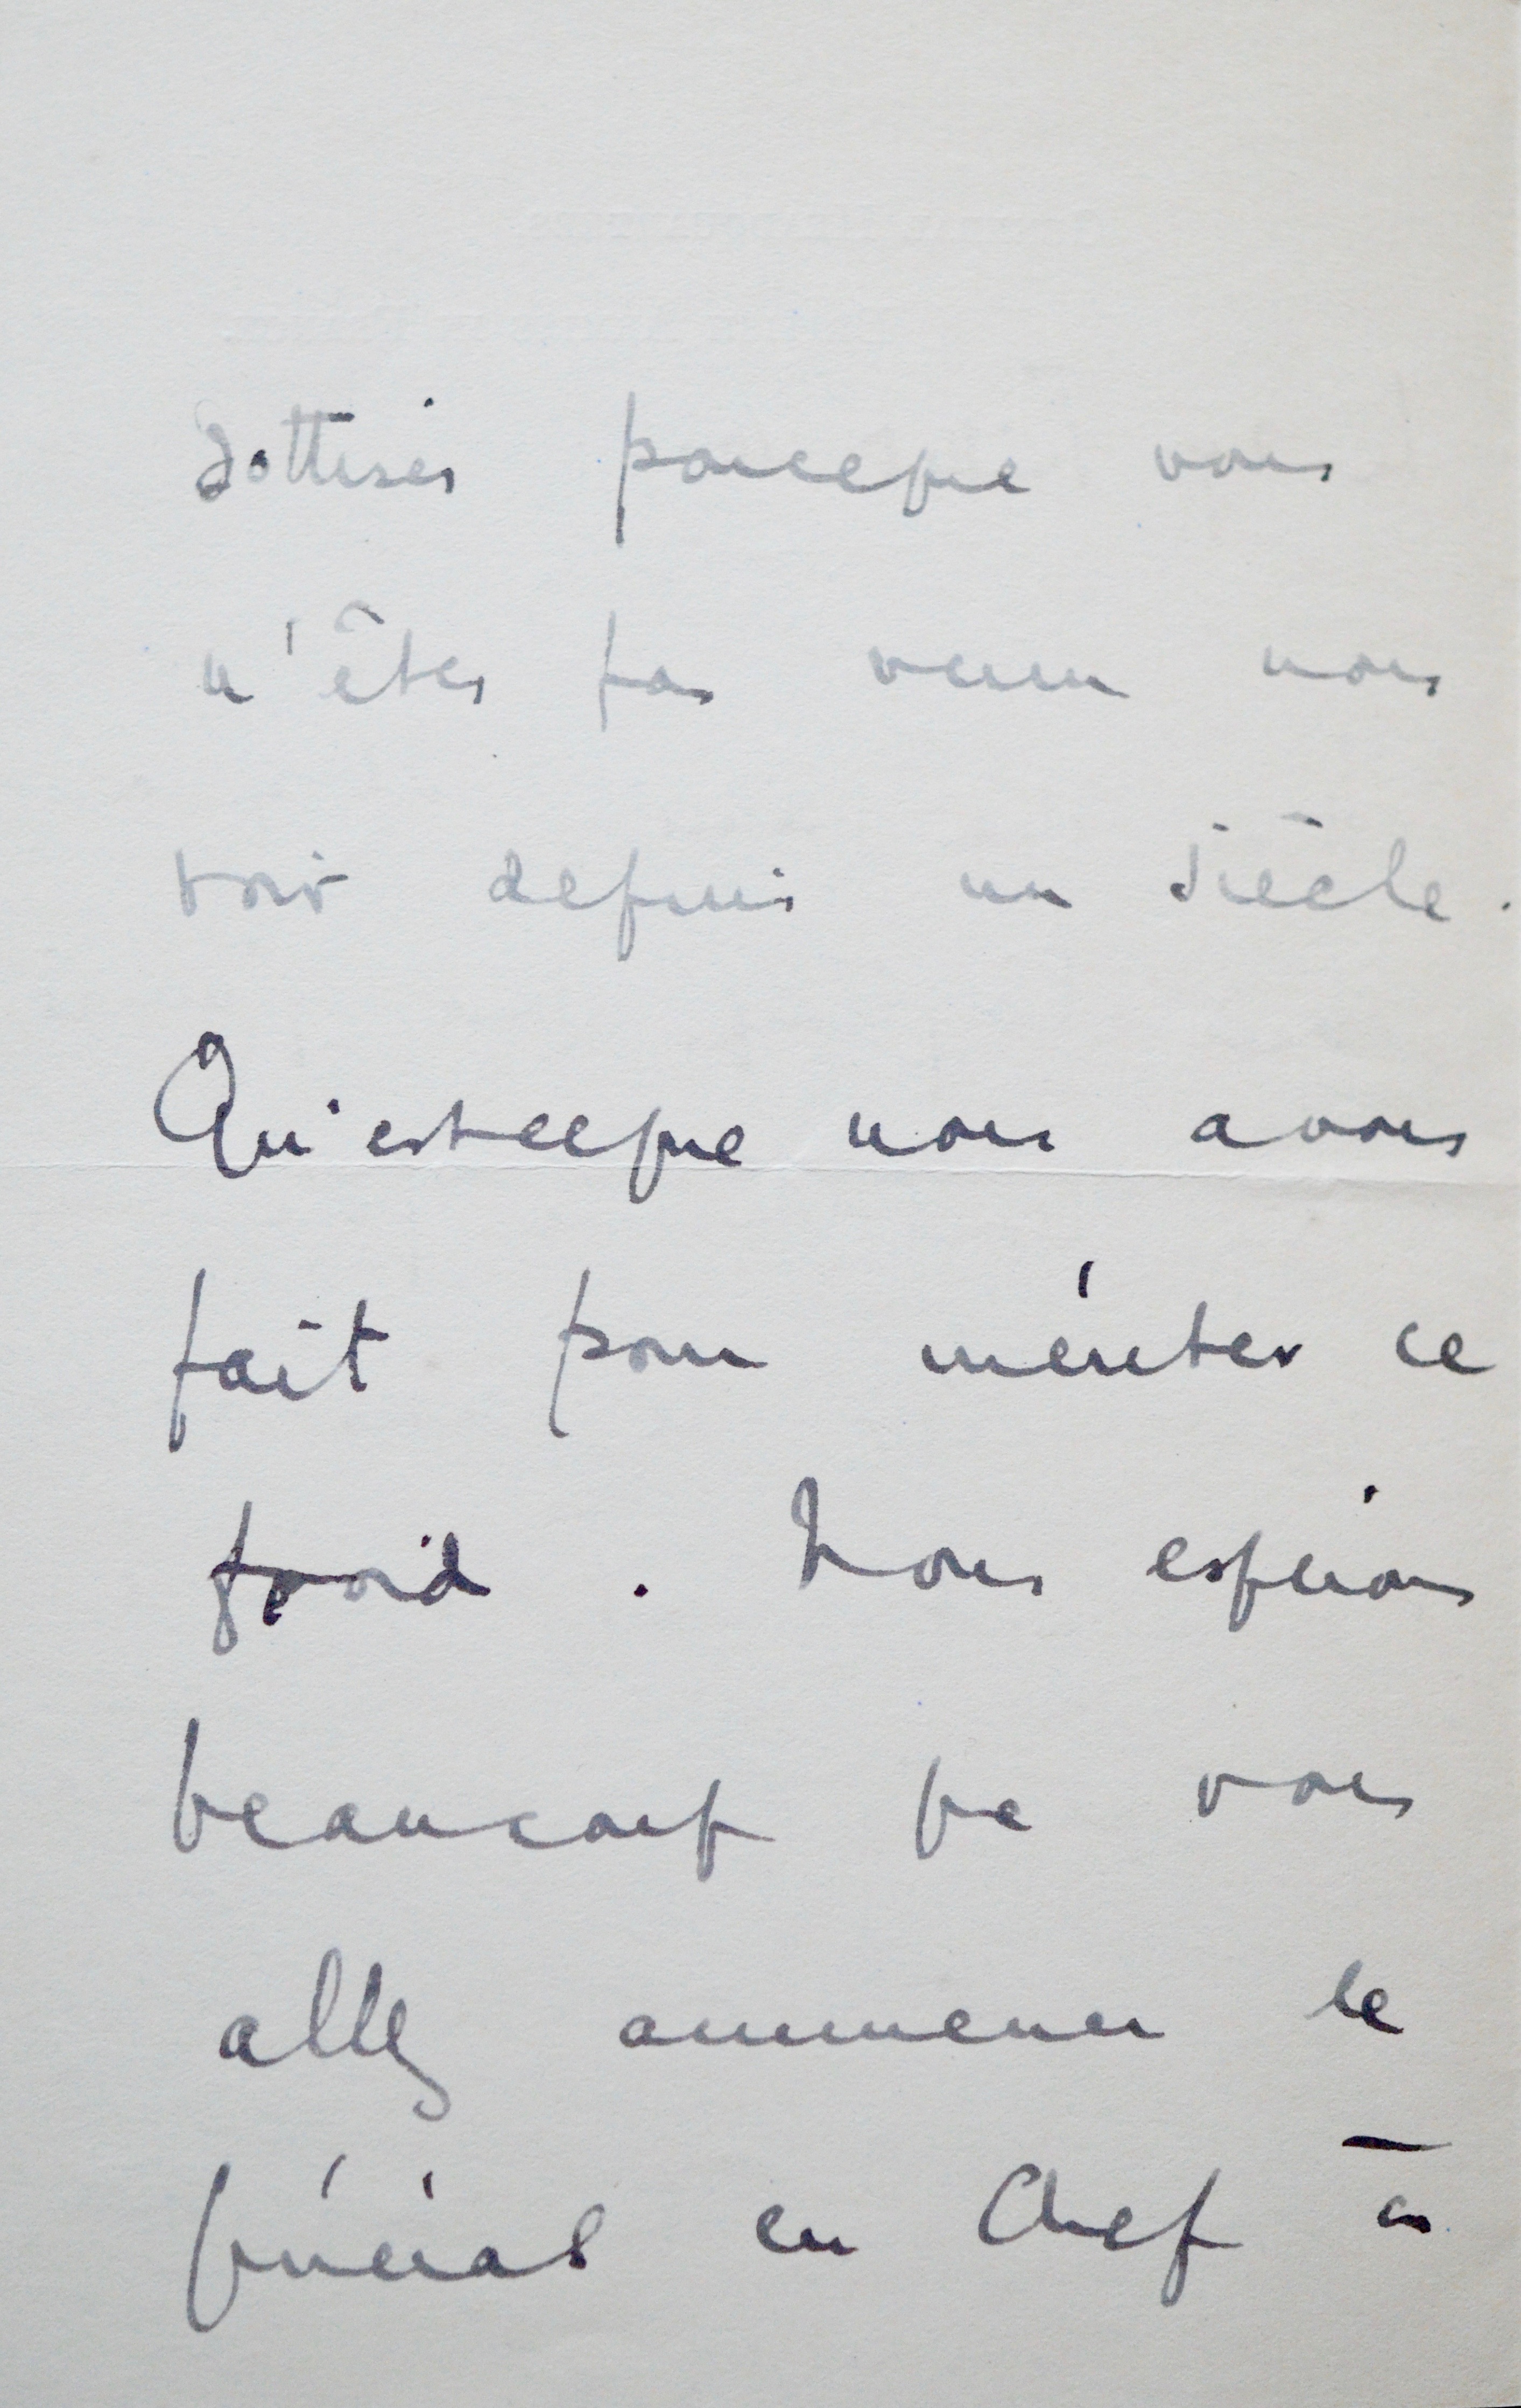 sottises parceque vous
n'êtes pas venu nous
voir depuis un siècle.
Qu'estceque nous avons
fait pour mériter ce
froid. Nous espérions
beaucoup que vous
allez ammener le
général en Chef à